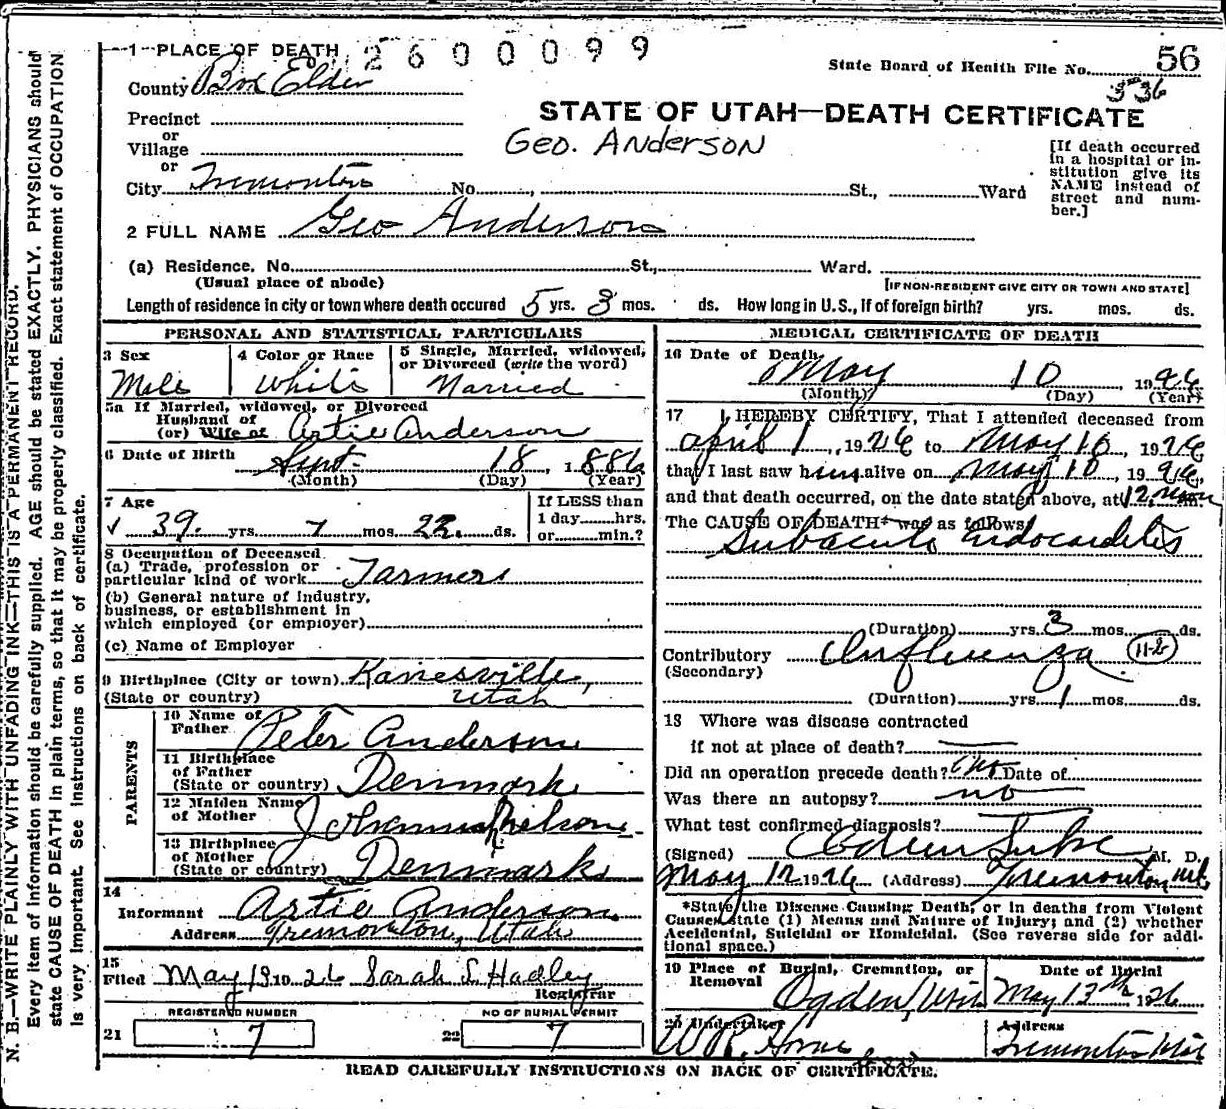 1 PLACE OF DEATH 2600099
State Board of Health File No. 56
336
County Box Elder
STATE OF UTAH—DEATH CERTIFICATE
Precinct
or
Village
or
Geo. Anderson
[If death occurred in a hospital or institution give its NAME instead of street and number.]
City Tremonton No. , St., Ward
2 FULL NAME Geo Anderson
(a) Residence, No. St., Ward.
(Usual place of abode) [IF NON-RESIDENT GIVE CITY OR TOWN AND STATE]
Length of residence in city or town where death occured 5 yrs. 3 mos. ds. How long in U.S., if of foreign birth? yrs. mos. ds.
PERSONAL AND STATISTICAL PARTICULARS
3 Sex
Male
4 Color or Race
White
5 Single, Married, widowed, or Divorced (write the word)
Married
5a If Married, widowed, or Divorced
Husband of
(or) Wife of Artie Anderson
6 Date of Birth Sept. 18, 1886
(Month) (Day) (Year)
7 Age
39 yrs. 7 mos. 22 ds.
If LESS than
1 day hrs.
or min.?
8 Occupation of Deceased
(a) Trade, profession or
particular kind of work Farmer
(b) General nature of industry,
business, or establishment in
which employed (or employer)
(c) Name of Employer
9 Birthplace (City or town) Kanesville,
(State or country) Utah
PARENTS
10 Name of
Father Peter Anderson
11 Birthplace
of Father
(State or country) Denmark
12 Maiden Name
of Mother Johanna Nielson
13 Birthplace
of Mother
(State or country) Denmark
14
Informant Artie Anderson
Address Tremonton, Utah
15
Filed May 13 1926 Sarah L Hadley
Registrar
REGISTERED NUMBER
21 7
NO OF BURIAL PERMIT
22 7
MEDICAL CERTIFICATE OF DEATH
16 Date of Death
May 10 1926
(Month) (Day) (Year)
17 I HEREBY CERTIFY, That I attended deceased from
April 1, 1926 to May 10, 1926
that I last saw him alive on May 10, 1926,
and that death occurred, on the date stated above, at 12 Noon m.
The CAUSE OF DEATH* was as follows:
Subacute Endocarditis
(Duration) yrs. 3 mos. ds.
Contributory Influenza 11-2
(Secondary)
(Duration) yrs. 1 mos. ds.
18 Where was disease contracted
if not at place of death?
Did an operation precede death? no Date of
Was there an autopsy? no
What test confirmed diagnosis?
(Signed) M. D.
May 12 1926 (Address) Tremonton Ut.
*State the Disease Causing Death, or in deaths from Violent
Causes state (1) Means and Nature of Injury; and (2) whether
Accidental, Suicidal or Homicidal. (See reverse side for addi-
tional space.)
19 Place of Burial, Cremation, or
Removal
Ogden, Utah
Date of Burial
May 13th 1926
20 Undertaker
W R. Horne
Address
Tremonton Utah
READ CAREFULLY INSTRUCTIONS ON BACK OF CERTIFICATE.
N. B.—WRITE PLAINLY WITH UNFADING INK—THIS IS A PERMANENT RECORD.
Every item of information should be carefully supplied. AGE should be stated EXACTLY. PHYSICIANS should
state CAUSE OF DEATH in plain terms, so that it may be properly classified. Exact statement of OCCUPATION
is very important. See Instructions on back of certificate.